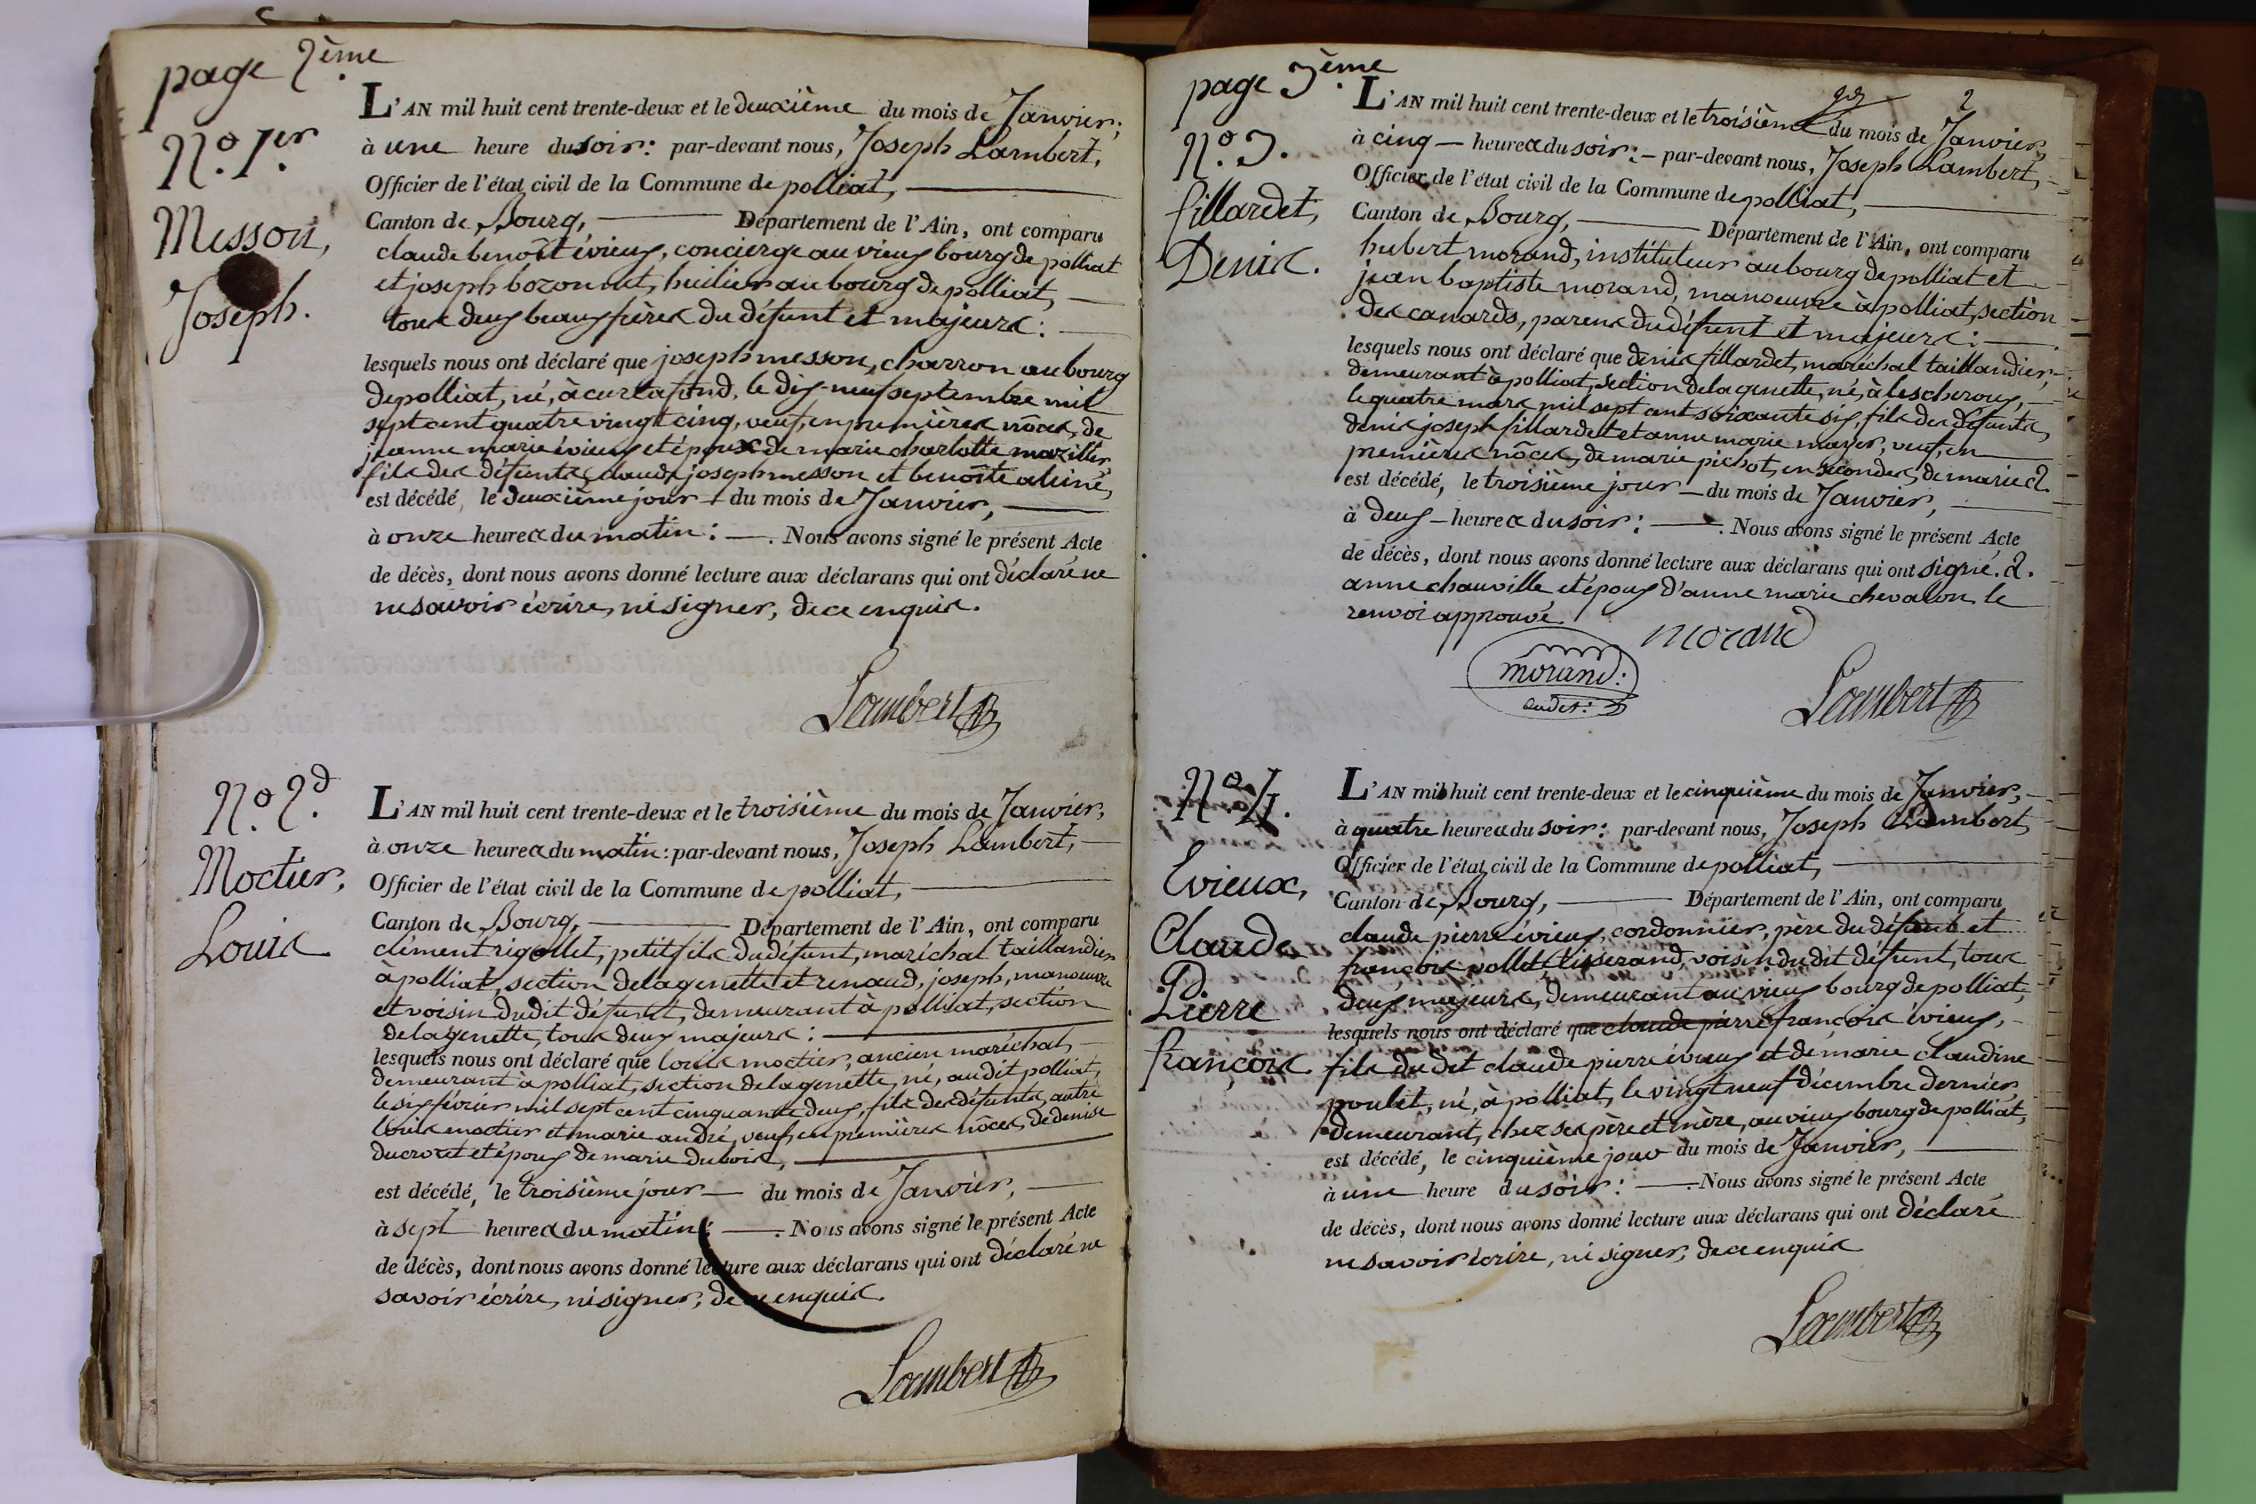 page 2ème
N.º 1er.
Messon,
Joseph.
L'AN mil huit cent trente-deux et le deuxième du mois de Janvier,
à une heure du soir: par-devant nous, Joseph Lambert,
Officier de l'état civil de la Commune de polliat,
Canton de Bourg, Département de l'Ain, ont comparu
claude benoît évieux, concierge au vieux bourg de polliat
et joseph bozonnet, huilier au bourg de polliat,
tous deux beaux frères du défunt et majeurs:
lesquels nous ont déclaré que joseph messon, charron au bourg
de polliat, né, à curtafond, le dix neuf septembre mil
sept cent quatre vingt cinq, veuf, en premières nôces, de
jeanne marie évieux et époux de marie charlotte mazillés
fils des défunts claude joseph messon et benoîte
est décédé, le deuxième jour du mois de Janvier,
à onze heures du matin: Nous avons signé le présent Acte
de décès, dont nous avons donné lecture aux déclarans qui ont déclaré ne
ne savoir écrire, ni signer, de ce enquis.
Lambert
N.º 2d.
Moctier,
Louis
L'AN mil huit cent trente-deux et le troisième du mois de Janvier,
à onze heures du matin: par-devant nous, Joseph Lambert,
Officier de l'état civil de la Commune de polliat,
Canton de Bourg, Département de l'Ain, ont comparu
clément rigollet, petit fils du défunt, maréchal taillandier
à polliat, section de lagenette et renaud, joseph, manoeuvre
et voisin dudit défunt, demeurant à polliat, section
de lagenette, tous deux majeurs:
lesquels nous ont déclaré que louis moctier, ancien maréchal,
demeurant à polliat, section de lagenette, né, audit polliat,
le six février mil sept cent cinquante deux, fils des défunts, autre
louis moctier et marie andré, veuf, en premières nôces, de denise
ducrozet et époux de marie dubois,
est décédé, le troisième jour du mois de Janvier,
à sept heures du matin: Nous avons signé le présent Acte
de décès, dont nous avons donné lecture aux déclarans qui ont déclaré ne
savoir écrire, ni signer, de ce enquis.
Lambert
page 3ème.
2
N.º 3.
fillardet,
Denis.
L'AN mil huit cent trente-deux et le troisième du mois de Janvier,
à cinq heures du soir: par-devant nous, Joseph Lambert,
Officier de l'état civil de la Commune de polliat,
Canton de Bourg, Département de l'Ain, ont comparu
hubert morand, instituteur au bourg de polliat et
jean baptiste morand, manoeuvre à polliat, section
des canards, parens du défunt et majeurs:
lesquels nous ont déclaré que denis fillardet, maréchal taillandier,
demeurant à polliat, section de lagenette, né, à lescheroux,
le quatre mars mil sept cent soixante six, fils des défunts
denis joseph fillardet et anne marie mayer, veuf, en
premières nôces, de marie pichot, en secondes, de marie 2.
est décédé, le troisième jour du mois de Janvier,
à deux heures du soir: Nous avons signé le présent Acte
de décès, dont nous avons donné lecture aux déclarans qui ont signé. 2.
anne chauville et époux d'anne marie chevalon, le
renvoi approuvé.
morand
morand:
cadet:
Lambert
N.º 4.
Evieux,
Claude
Pierre
françois
L'AN mil huit cent trente-deux et le cinquième du mois de Janvier,
à quatre heures du soir: par-devant nous, Joseph Lambert,
Officier de l'état civil de la Commune de polliat,
Canton de Bourg, Département de l'Ain, ont comparu
claude pierre évieux, cordonnier, père du défunt et
françois pollet, tisserand, voisin dudit défunt, tous
deux majeurs, demeurant au vieux bourg de polliat,
lesquels nous ont déclaré que claude pierre françois évieux,
fils dudit claude pierre évieux et de marie claudine
poulet, né, à polliat, le vingt neuf décembre dernier,
demeurant, chez ses père et mère, au vieux bourg de polliat,
est décédé, le cinquième jour du mois de Janvier,
à une heure du soir: Nous avons signé le présent Acte
de décès, dont nous avons donné lecture aux déclarans qui ont déclaré
ne savoir écrire, ni signer, de ce enquis
Lambert